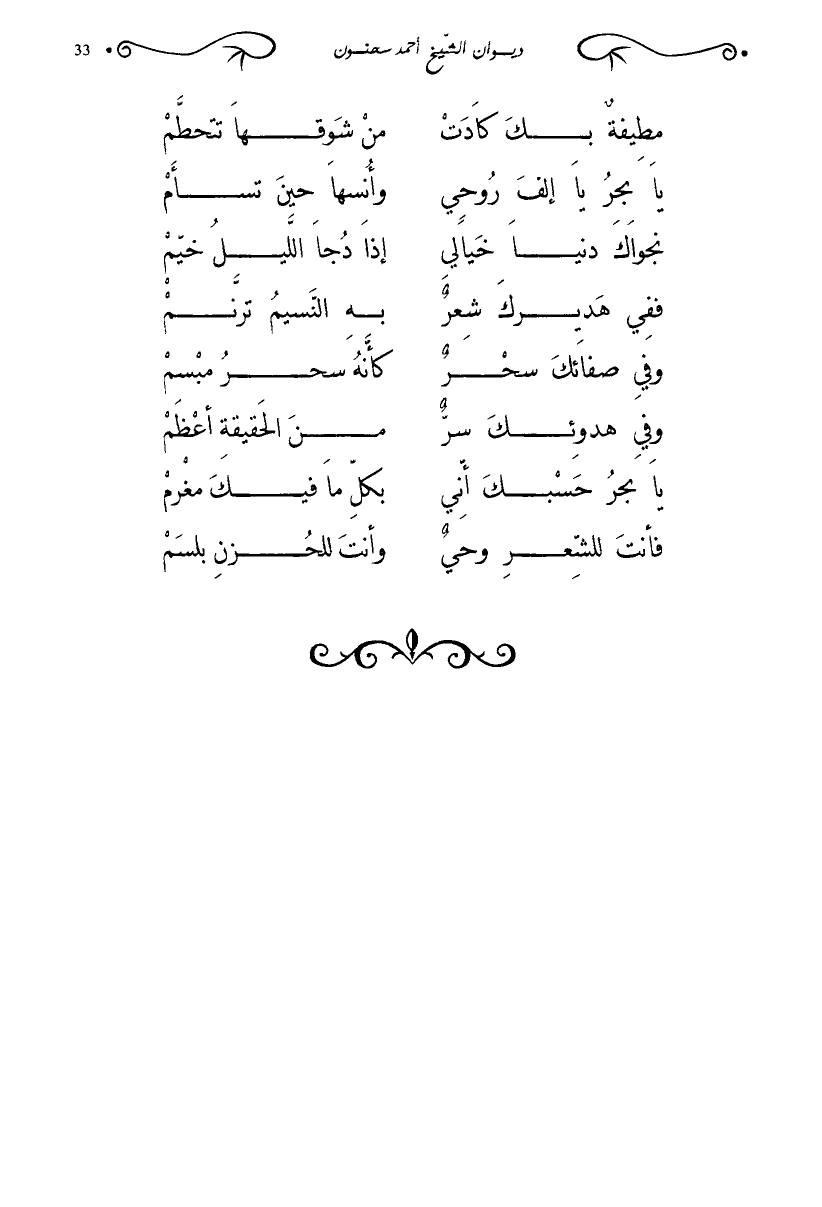 33 ديوان الشّيخ أحمد سحنون
مطِيفةٌ بكَ كَادَتْ منْ شَوقهاَ تتحطَّمْ
ياَ بحرُ ياَ إلفَ رُوحِي وأُنسهاَ حينَ تسأَمْ
نجواكَ دنياَ خَيالِي إذاَ دُجاَ اللَّيلُ خيّمْ
ففِي هَديرِكَ شعرٌ بهِ النَّسيمُ ترنَّمْ
وفِي صفائكَ سحْرٌ كأنَّهُ سحرُ مبْسمْ
وفِي هدوئِكَ سرٌّ منَ الحَقيقةِ أعْظَمْ
ياَ بحرُ حَسْبكَ أنِّي بكلِّ ماَ فيكَ مغْرمْ
فأنتَ للشّعرِ وحيٌ وأنتَ للحُزنِ بلسَمْ